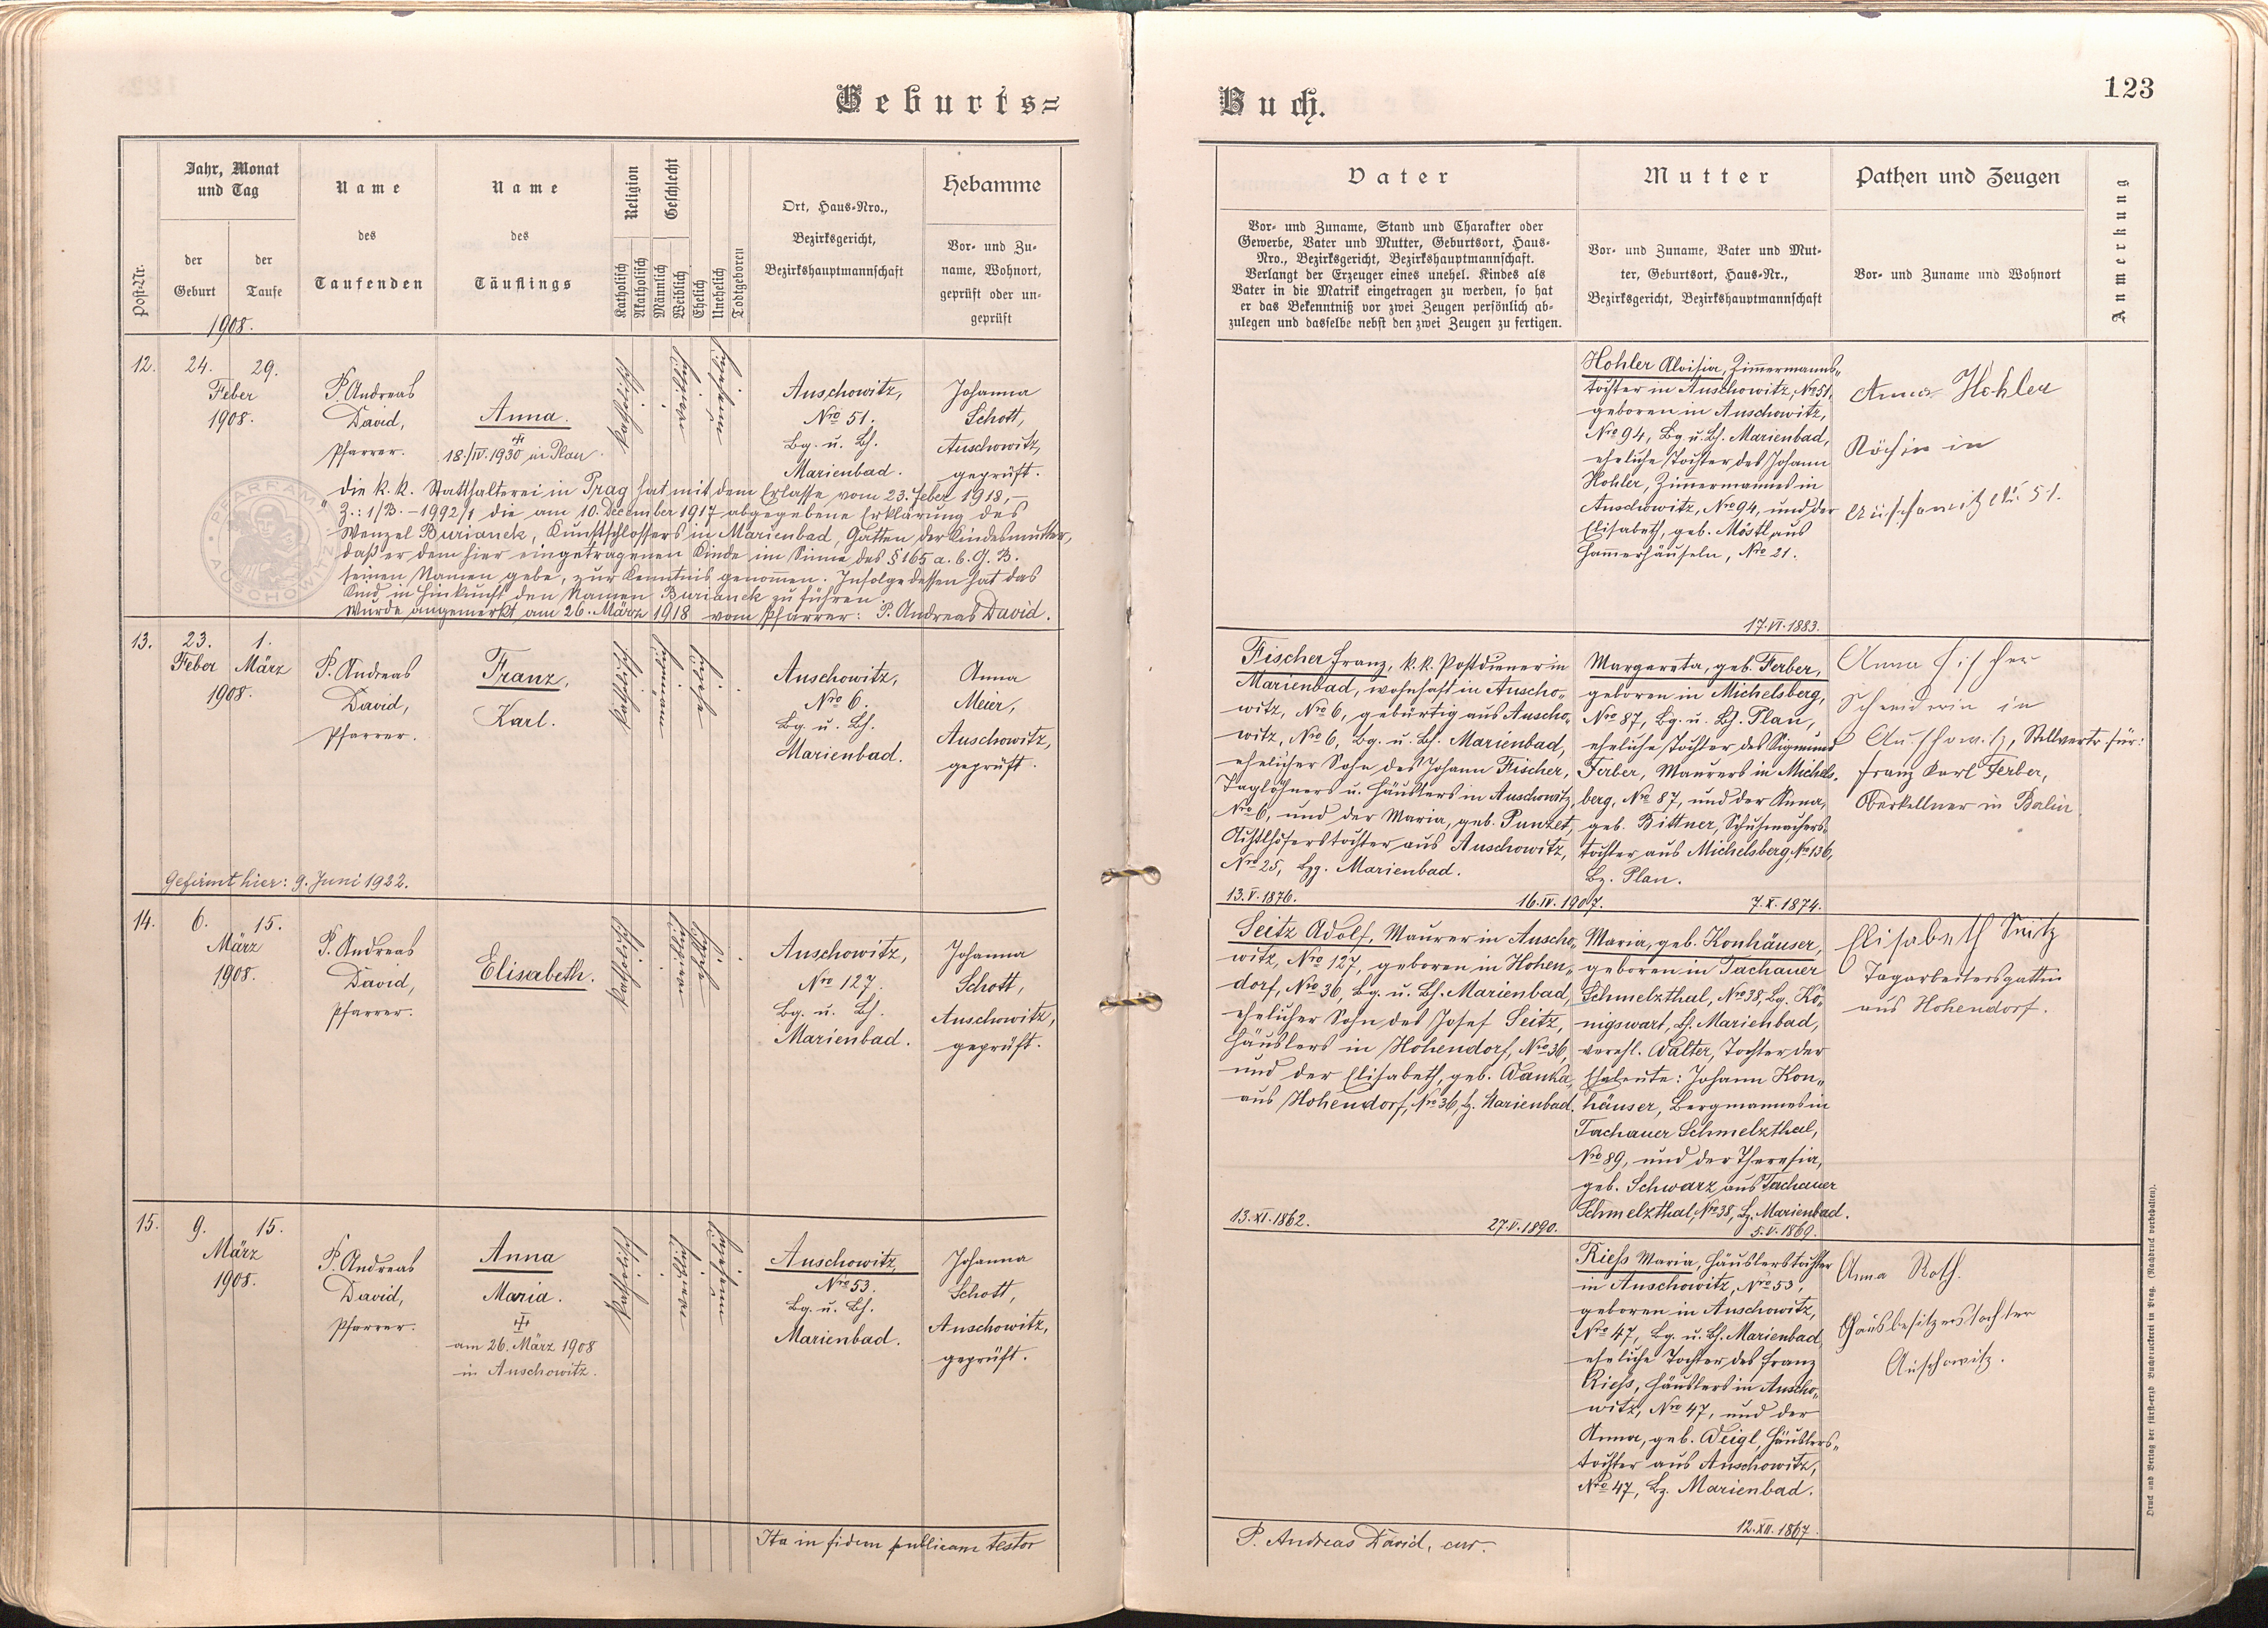 Geburts=
Post-Nr.
Jahr, Monat
und Tag
der
Geburt
der
Taufe
1908.
Name
des
Taufenden
Name
des
Täuflings
Religion
Katholisch
Akatholisch
Geschlecht
Männlich
Weiblich
Ehelich
Unehelich
Todtgeboren
Ort, Haus-Nro.,
Bezirksgericht,
Bezirkshauptmannschaft
Hebamme
Vor- und Zu-
name, Wohnort,
geprüft oder un-
geprüft
12.
24. 29.
Feber
1908.
P. Andreas
David,
Pfarrer.
Anna.
18./IV. 1930 in Plan.
Katholisch
Auschowitz,
Nro 51.
Bg. u. Bh.
Marienbad.
Johanna
Schott,
Auschowitz,
geprüft.
PFARRAMT AUSCHOWITZ
Die k. k. Statthalterei in Prag hat mit dem Erlasse vom 23. Feber 1918,
Z.: 1/B. - 1992/1 die am 10. December 1917 abgegebene Erklärung des
Wenzel Burianek, Kunstschlossers in Marienbad, Gatten der Kindesmutter,
daß er dem hier eingetragenen Kinde im Sinne des § 165 a. b. G. B.
seinen Namen gebe, zur Kenntnis genommen. Infolgedessen hat das
Kind in Hinkunft den Namen Burianek zu führen.
Wurde angemerkt am 26. März 1918 vom Pfarrer: P. Andreas David.
13.
23. 1.
Feber März
1908.
P. Andreas
David,
Pfarrer.
Franz,
Karl.
Katholisch
Auschowitz,
Nro 6.
Bg. u. Bh.
Marienbad.
Anna
Meier,
Auschowitz,
geprüft.
Gefirmt hier: 9. Juni 1922.
14.
6. 15.
März
1908.
P. Andreas
David,
Pfarrer.
Elisabeth.
Katholisch
Auschowitz,
Nro 127.
Bg. u. Bh.
Marienbad.
Johanna
Schott,
Auschowitz,
geprüft.
15.
9. 15.
März
1908.
P. Andreas
David,
Pfarrer.
Anna
Maria.
am 26. März 1908
in Auschowitz.
Katholisch
Auschowitz,
Nro 53.
Bg. u. Bh.
Marienbad.
Johanna
Schott,
Auschowitz,
geprüft.
Ita in fidem publicam testor
Buch.
123
Vater
Vor- und Zuname, Stand und Charakter oder
Gewerbe, Vater und Mutter, Geburtsort, Haus-
Nro., Bezirksgericht, Bezirkshauptmannschaft.
Verlangt der Erzeuger eines unehel. Kindes als
Vater in die Matrik eingetragen zu werden, so hat
er das Bekenntniß vor zwei Zeugen persönlich ab-
zulegen und dasselbe nebst den zwei Zeugen zu fertigen.
Mutter
Vor- und Zuname, Vater und Mut-
ter, Geburtsort, Haus-Nr.,
Bezirksgericht, Bezirkshauptmannschaft
Pathen und Zeugen
Vor- und Zuname und Wohnort
Anmerkung
Hohler Aloisia, Zimmermanns-
tochter in Auschowitz, No 51,
geboren in Auschowitz,
Nro 94, Bg. u. Bh. Marienbad,
eheliche Tochter des Johann
Hohler, Zimmermannes in
Auschowitz, Nro 94, und der
Elisabeth, geb. Möstl aus
Hammerhäuseln, Nro 21.
17. VI. 1883.
Anna Hohler
Köchin in
Auschowitz No. 51.
Fischer Franz, k. k. Postdiener in
Marienbad, wohnhaft in Auscho-
witz, Nro 6, gebürtig aus Auscho-
witz, Nro 6, Bg. u. Bh. Marienbad,
ehelicher Sohn des Johann Fischer,
Taglöhners u. Häuslers in Auschowitz,
Nro 6, und der Maria, geb. Punzet,
tochter aus Auschowitz,
Nro 25, Bz. Marienbad.
13. V. 1876. 16. IV. 1907.
Margareta, geb. Ferber,
geboren in Michelsberg,
Nro 87, Bg. u. Bh. Plan,
eheliche Tochter des Sigmund
Ferber, Maurers in Michels-
berg, Nro 87, und der Anna,
geb. Bittner, Schuhmachers-
tochter aus Michelsberg, No 136,
Bz. Plan.
7. X. 1874.
Anna Fischer
Schneiderin in
Auschowitz, Stellvertr. für:
Franz Karl Ferber,
Oberkellner in
Seitz Adolf, Maurer in Auscho-
witz, Nro 127, geboren in Hohen-
dorf, Nro 36, Bg. u. Bh. Marienbad,
ehelicher Sohn des Josef Seitz,
Häuslers in Hohendorf, Nro 36,
und der Elisabeth, geb. Wanka,
aus Hohendorf, Nro 36, Bz. Marienbad.
13. XI. 1862. 27. V. 1890.
Maria, geb. Konhäuser,
geboren in Tachauer
Schmelzthal, Nro 38, Bg. Kö-
nigswart, Bh. Marienbad,
verehl. Walter, Tochter der
Eheleute: Johann Kon-
häuser, Bergmannes in
Tachauer Schmelzthal,
Nro 89, und der Theresia,
geb. Schwarz aus Tachauer
Schmelzthal, Nro 38, Bz. Marienbad.
5. V. 1869.
Elisabeth Seitz
Tagarbeitersgattin
aus Hohendorf.
Rieß Maria, Häuslerstochter
in Auschowitz, Nro 53,
geboren in Auschowitz,
Nro 47, Bg. u. Bh. Marienbad,
eheliche Tochter des Franz
Rieß, Häuslers in Auscho-
witz, Nro 47, und der
Anna, geb. Weigl, Häuslers-
tochter aus Auschowitz,
Nro 47, Bz. Marienbad.
12. XII. 1867.
Anna Roth.
Hausbesitzerstochter
Auschowitz.
P. Andreas David, cur.
Druck und Verlag der fürst-erzb Buchdruckerei in Prag. (Nachdruck vorbehalten).